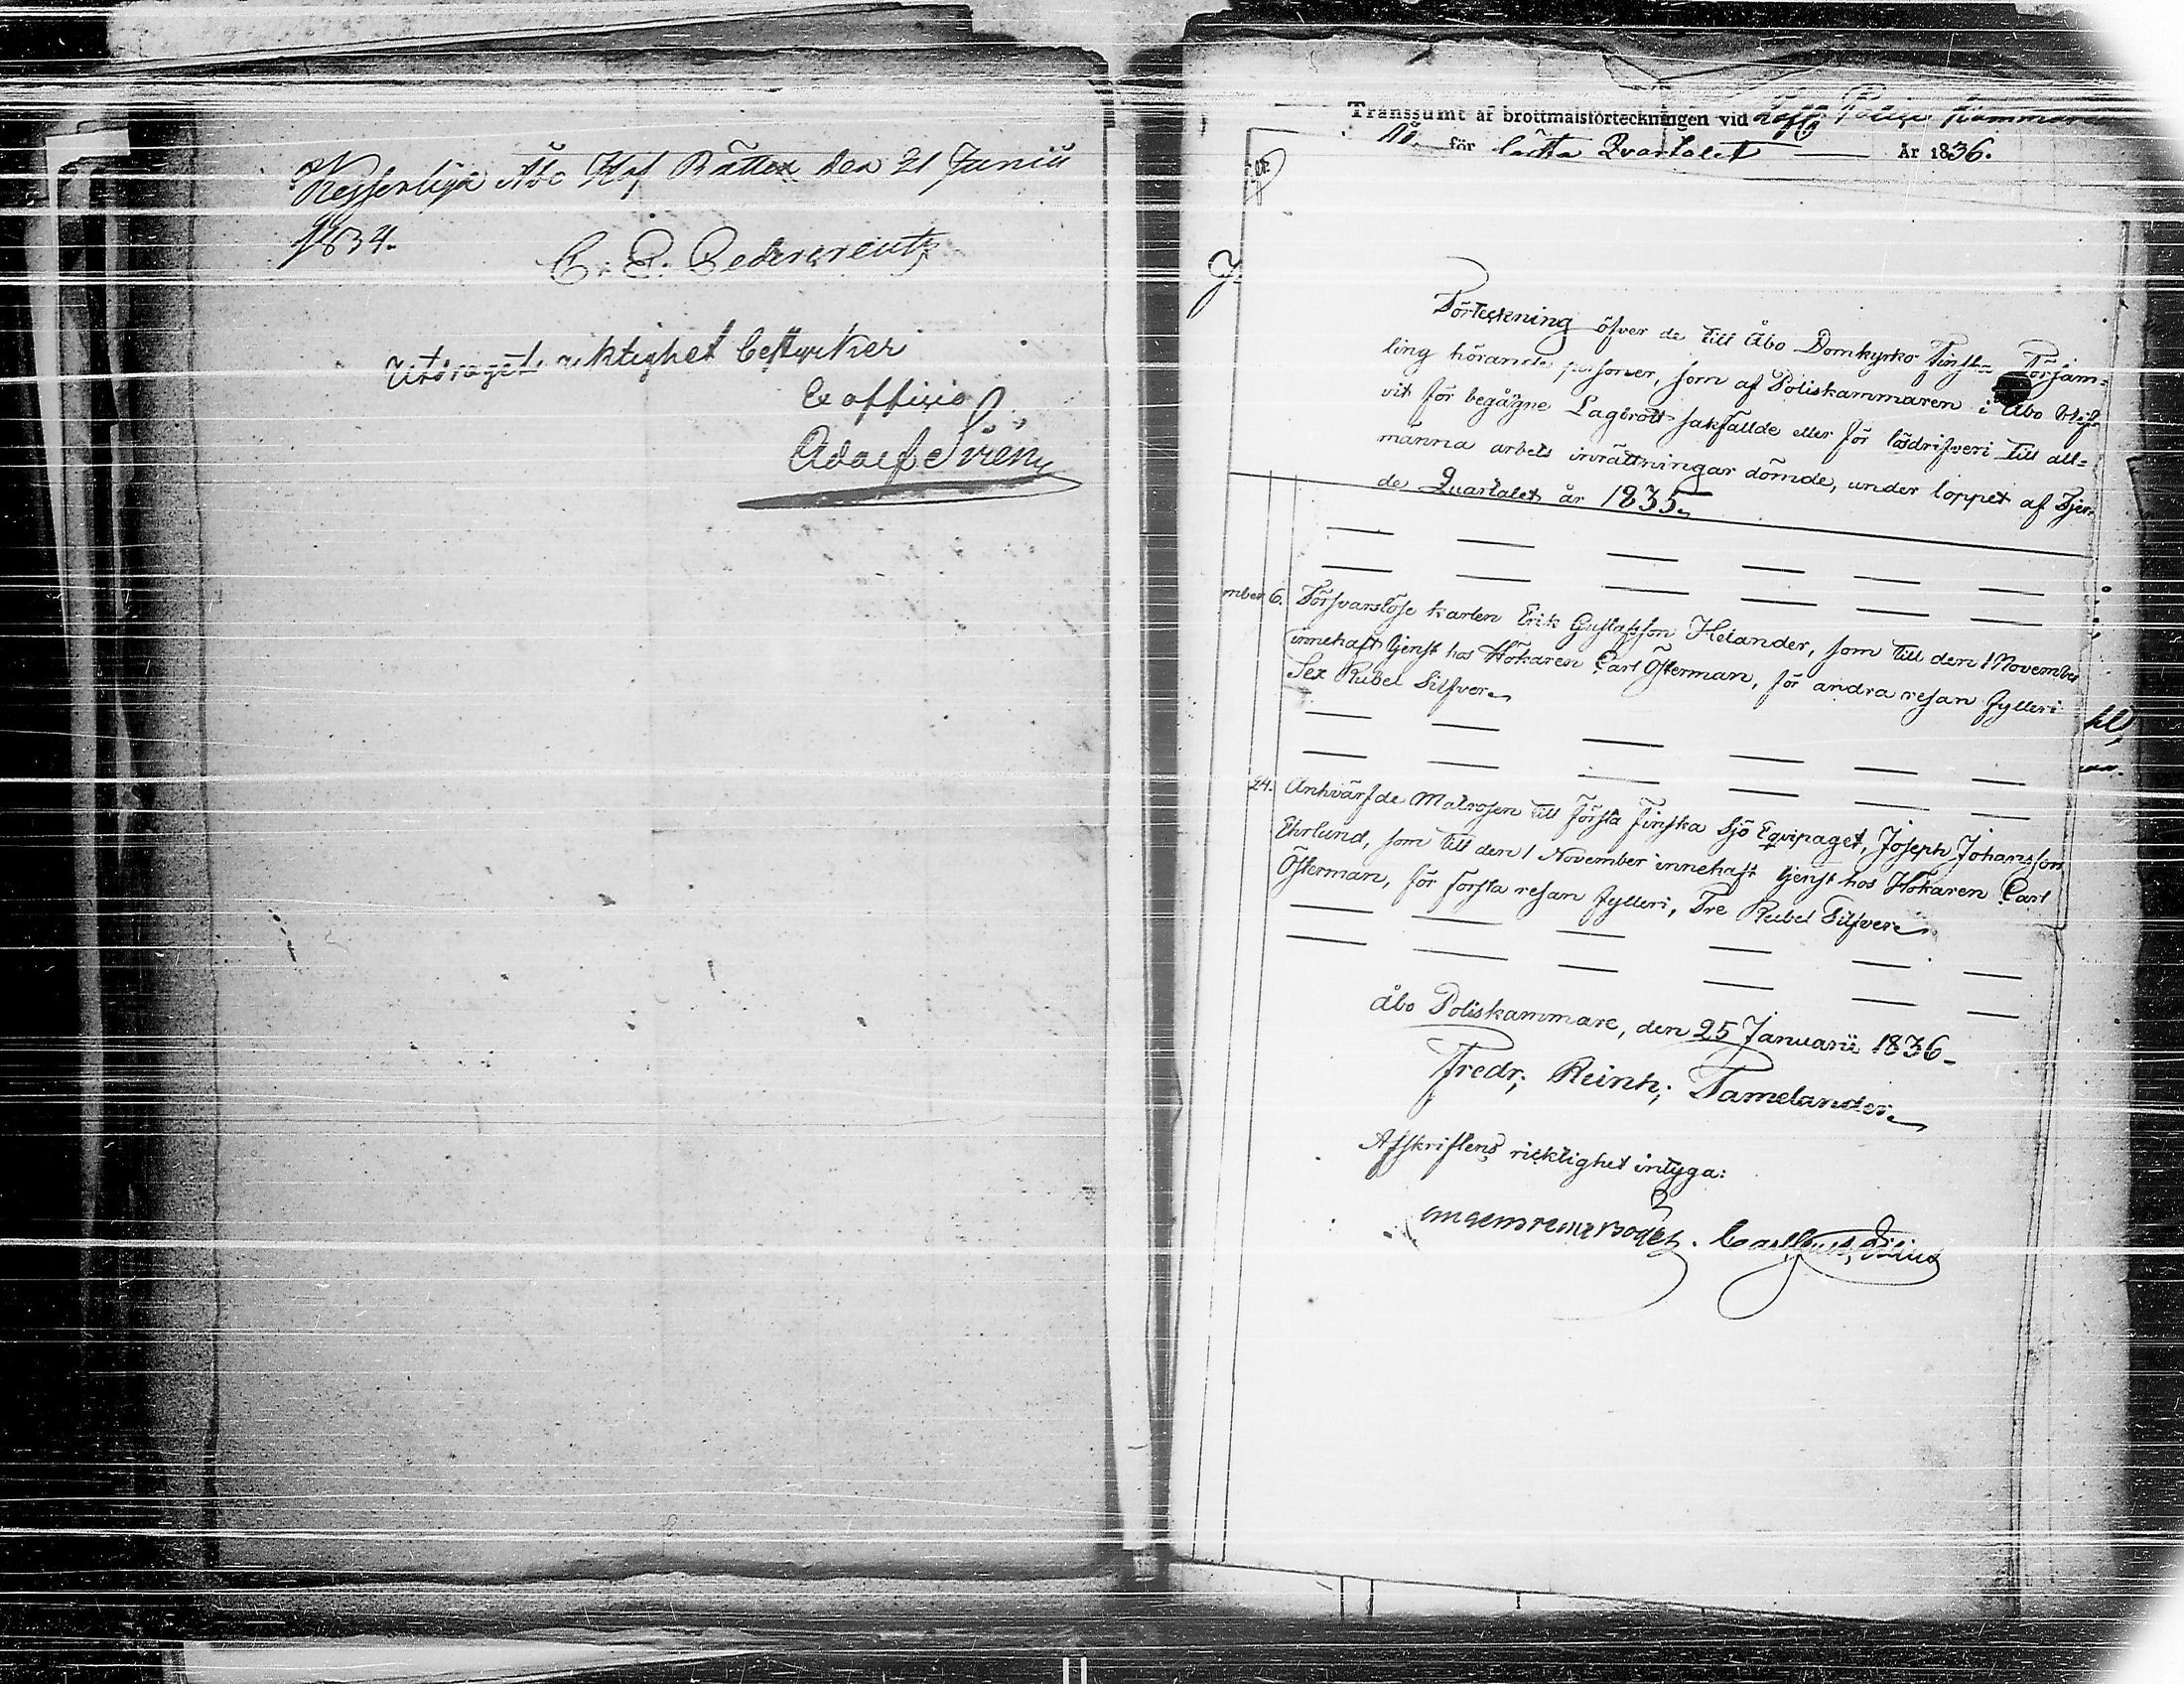 Kejserliga Åbo Hof Rätten den 21 Junii
1834.
C. E. Cedercreutz
Utdragets riktighet bestyrker
Ex officio
Adolf
Transsumt af brottmålsförteckningen vid Police Kammaren
för sista Qvartalet År 1836.
Förteckning öfver de till Åbo Domkyrko Finska Församˍ
ling hörande personer, som af Poliskammaren i Åbo blif-
vit för begågne Lagbrott sakfällde eller för lösdrifveri till all-
männa arbets inrättningar dömde, under loppet af Fjer-
de Quartalet år 1835.
mber 6. Försvarslöse karlen Erik Gustafsson Helander, som till den 1 November
innehaft tjenst hos Hökaren Carl Österman, för andra resan fylleri
Sex Rubel Silfver.
24. Anhvärfde Matrosen till Första Finska Sjö Equipaget, Joseph Johansson
Ehrlund, som till den 1 November innehaft tjenst hos Hökaren Carl
Österman, för första resan fylleri, Tre Rubel Silfver.
Åbo Poliskammare, den 25 Januarii 1836.
Fredr; Reinh; Tamelander.
Afskriftens ricktighet intyga: